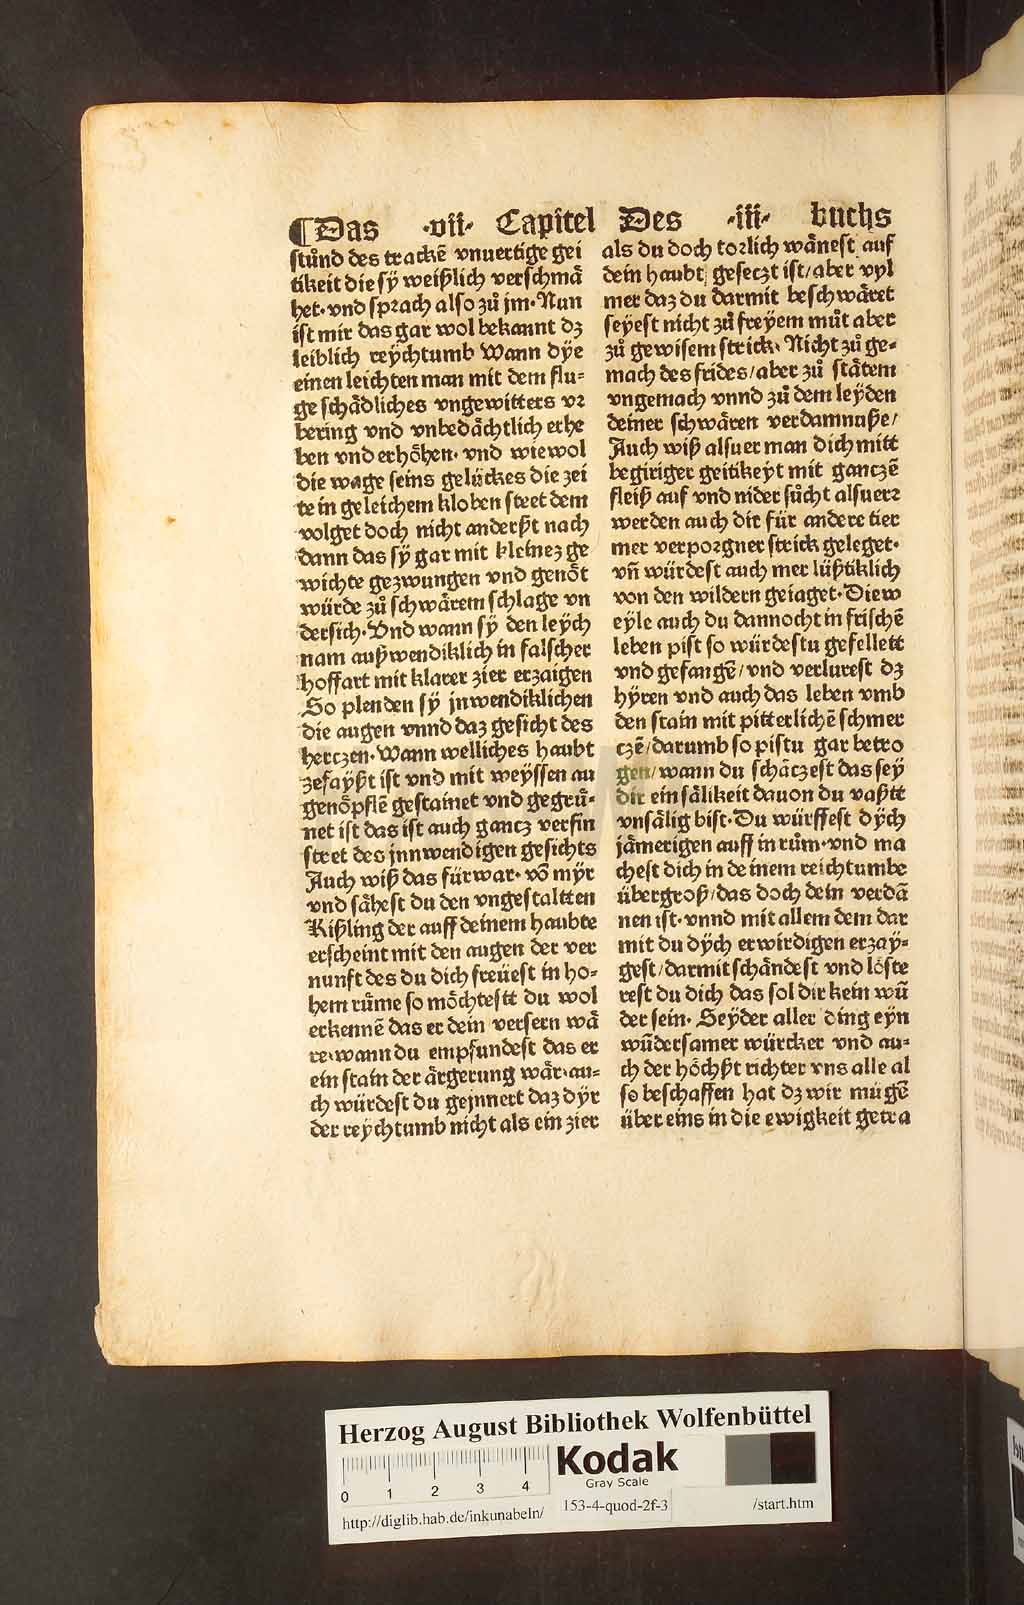 ¶Das ·vii· Capitel Des ·iii· buchs
stůnd des trackē vnuertige gei
tikeit die sÿ weißlich verschmä
het· vnd sprach also zů jm· Nun
ist mir das gar wol bekannt dz
leiblich reÿchtumb Wann dÿe
einen leichten man mit dem flu⸗
ge schädliches vngewitters vr
bering vnd vnbedächtlich erhe
ben vnd erhöhen· vnd wiewol
die wage seins gelückes die zei
te in geleichem kloben steet dem
volget doch nicht anderßt nach
dann das sÿ gar mit kleinez ge
wichte gezwungen vnd genöt
würde zů schwärem schlage vn
dersich· Vnd wann sÿ den leÿch
nam außwendiklich in falscher
hoffart mit klarer zier erzaigen
So plenden sÿ jnwendiklichen
die augen vnnd daz gesicht des
herczen· Wann welliches haubt
zefaÿßt ist vnd mit weÿssen au
genöpflē gestainet vnd gegrů⸗
net ist das ist auch gancz verfin
stret des jnnwendigen gesichts
Auch wiß das fürwar· vō mÿr
vnd sähest du den vngestaltten
Kißling der auff deinem haubte
erscheint mit den augen der ver
nunft des du dich freüest in ho⸗
hem růme so möchtestt du wol
erkennē das er dein versern wä
re· wann du empfundest das er
ein stain der ärgerung wär· au⸗
ch würdest du gejnnert daz dÿr
der reÿchtumb nicht als ein zier
als du doch torlich wänest auf
dein haubt geseczt ist/ aber vyl
mer daz du darmit beschwäret
seÿest nicht zů freÿem můt aber
zů gewisem strick· Nicht zů ge⸗
mach des frides/ aber zů stätem
vngemach vnnd zů dem leÿden
deiner schwären verdamnuße/
Auch wiß alsuer man dich mitt
begiriger geitikeyt mit ganczē
fleiß auf vnd nider sůcht alsuerr
werden auch dir für andere tier
mer verporgner strick geleget·
vn̄ würdest auch mer lüßtiklich
von den wildern geiaget· Die w
eÿle auch du dannocht in frischē
leben pist so würdestu gefellett
vnd gefangē/ vnd verlurest dz
hÿren vnd auch das leben vmb
den stain mit pitterlichē schmer
czē/ darumb so pistu gar betro
gen/ wann du schäczest das seÿ
dir ein sälikeit dauon du vaßtt
vnsälig bist· Du würffest dÿch
jämerigen auff in rům· vnd ma
chest dich in deinem reichtumbe
übergroß/ das doch dein verdā
nen ist· vnnd mit allem dem dar
mit du dÿch erwirdigen erzaÿ⸗
gest/ darmit schändest vnd löste
rest du dich das sol dir kein wū
der sein· Seÿder aller ding eÿn
wūdersamer würcker vnd au⸗
ch der höchßt richter vns alle al
so beschaffen hat dz wir mügē
über eins in die ewigkeit getra
Herzog August Bibliothek Wolfenbüttel
Kodak
Gray Scale
0 1 2 3 4
http://diglib.hab.de/inkunabeln/ 153-4-quod-2f-3 /start.htm